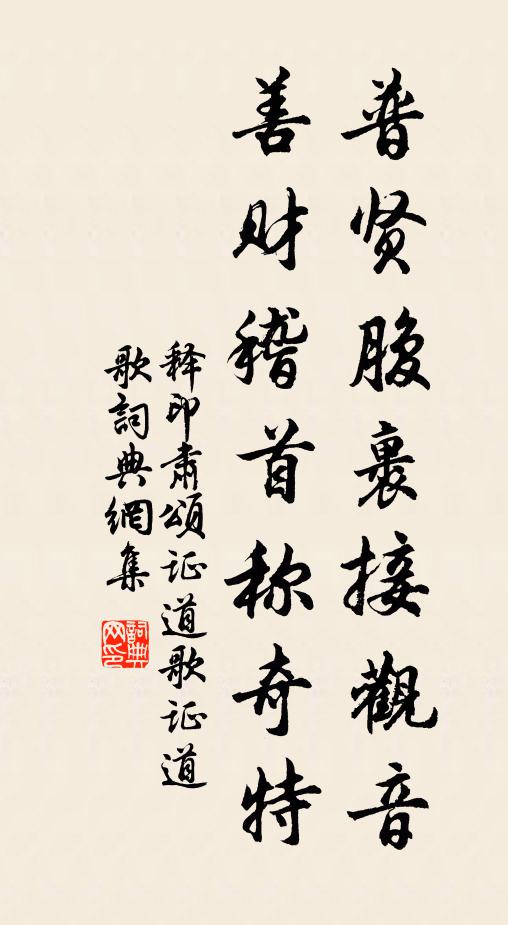 普贤腹裹接觀音
善财稽首称奇特
释印肃頌证道歌证道
歌詞典網集
詞典网印